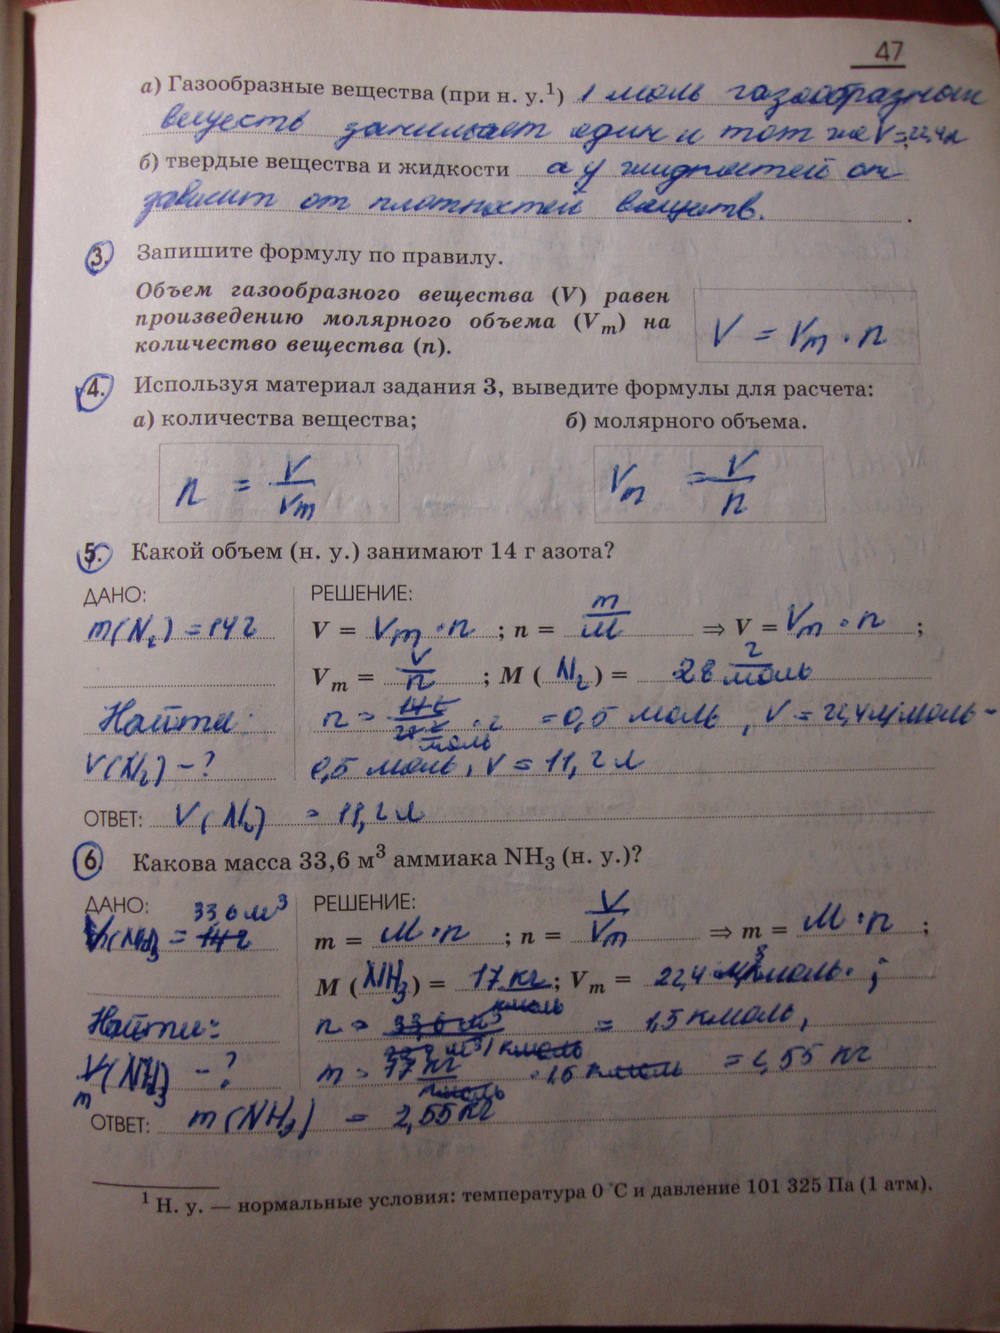 47
а) Газообразные вещества (при н. у.¹) 1 моль газообразных
веществ занимает один и тот же V=22,4л
б) твердые вещества и жидкости а у жидкостей он
зависит от плотностей веществ.
3. Запишите формулу по правилу.
Объем газообразного вещества (V) равен
произведению молярного объема (Vm) на
количество вещества (n).
V = Vm · n
4. Используя материал задания 3, выведите формулы для расчета:
а) количества вещества; б) молярного объема.
n = V/Vm Vm = V/n
5. Какой объем (н. у.) занимают 14 г азота?
ДАНО: РЕШЕНИЕ:
m(N₂) = 14 г V = Vm · n ; n = m/M ⇒ V = Vm · n ;
Vm = V/n ; M ( N₂ ) = 28 г/моль
Найти: n = = 0,5 моль , V = 22,4 л/моль ·
V(N₂) – ? 0,5 моль, V = 11,2 л
ОТВЕТ: V(N₂) = 11,2 л
6. Какова масса 33,6 м³ аммиака NH₃ (н. у.)?
ДАНО: РЕШЕНИЕ:
V(NH₃) = 33,6 м³ m = M · n ; n = V/Vm ⇒ m = M · n ;
M ( NH₃ ) = 17 кг/кмоль ; Vm = 22,4
Найти: n = 33,6 м³ = 1,5 кмоль,
m(NH₃) – ? m = 17 кг/кмоль · 1,5 кмоль = 2,55 кг
ОТВЕТ: m(NH₃) = 2,55 кг
¹ Н. у. — нормальные условия: температура 0 °С и давление 101 325 Па (1 атм).